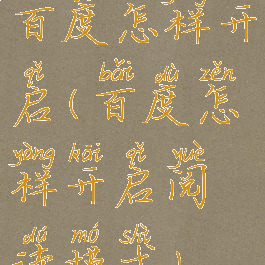 百度怎样开
qǐ bǎi dù zěn
启(百度怎
yàng kāi qǐ yuè
样开启阅
dú mó shì
读模式)